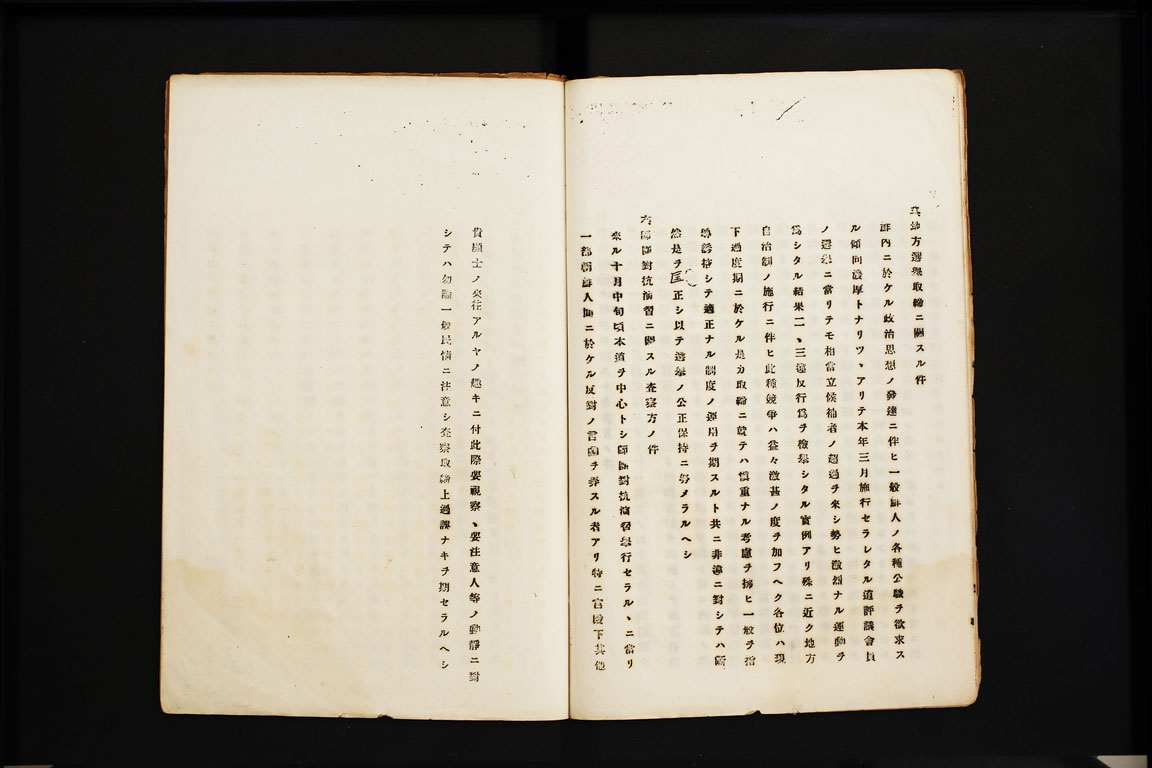 其地方選擧取締ニ關スル件
鮮内ニ於ケル政治思想ノ發達ニ件ヒ一般鮮人ノ各種公職ヲ欲求ス
ル傾向濃厚トナリツヽアリテ本年三月施行セラレタル道評議會員
ノ選擧ニ當リテモ相當立候補者ノ超過ヲ來シ勢ヒ激烈ナル運動ヲ
爲シタル結果二、三違反行爲ヲ檢擧シタル實例アリ殊ニ近ク地方
自治制ノ施行ニ件ヒ此種競爭ハ益々激甚ノ度ヲ加フヘク各位ハ現
下過度期ニ於ケル是カ取締ニ就テハ愼重ナル考慮ヲ拂ヒ一般ヲ指
導誘掖シテ適正ナル制度ノ運用ヲ期スルト共ニ非違ニ對シテハ斷
然是ヲ匡正シ以テ選擧ノ公正保持ニ努メラルヘシ
六師團對抗演習ニ關スル査察方ノ件
來ル十月中旬頃本道ヲ中心トシ師團對抗演習擧行セラルヽニ當リ
一部朝鮮人間ニ於ケル反對ノ言動ヲ弄スル者アリ特ニ官殿下其他
貴顯士ノ來往アルヤノ趣キニ付此際要視察、要注意人等ノ動靜ニ對
シテハ勿論一般民情ニ注意シ査察取締上過誤ナキヲ期セラルヘシ